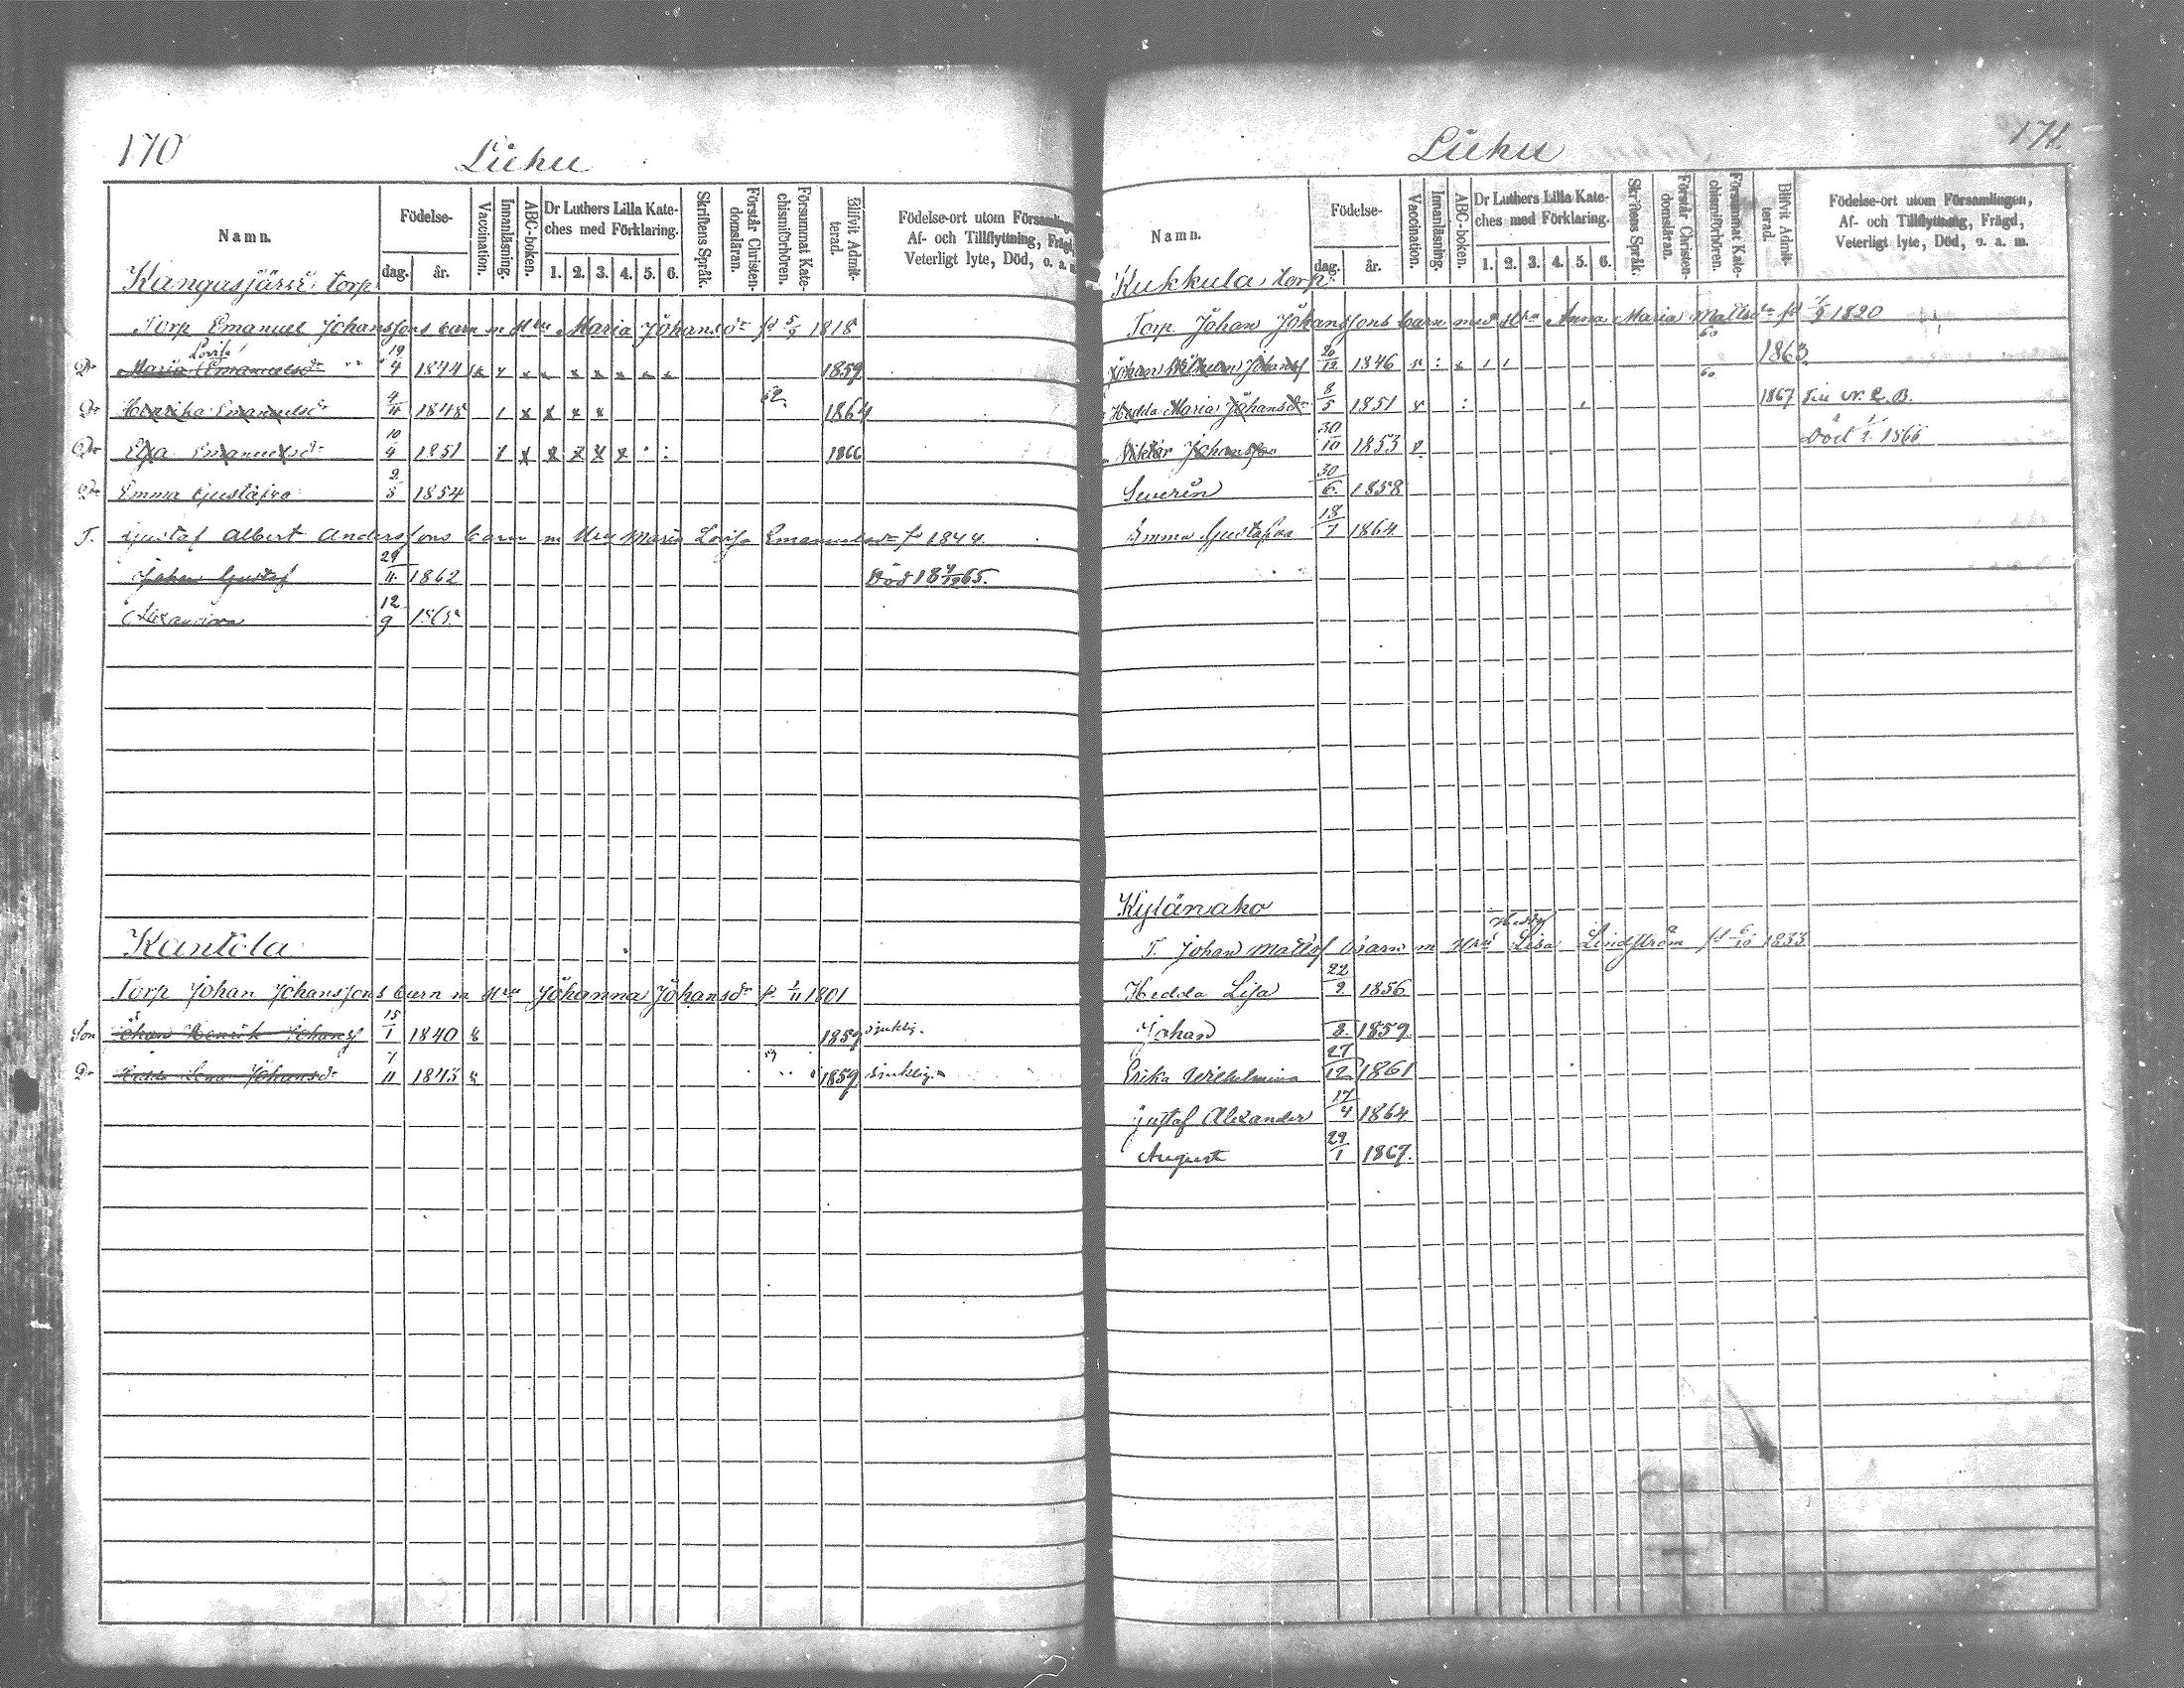 170
Liehu
Namn.
Födelse-
dag.
år.
Vaccination.
Innanläsning.
ABC-boken.
Dr Luthers Lilla Kate-
ches med Förklaring.
1. 2. 3. 4. 5. 6.
Skriftens Språk.
Förstår Christen-
domsläran.
Försummat Kate-
chismiförhören.
Blifvit Admit-
terad.
Födelse-ort utom Församlingen
Af- och Tillflyttning, Frägd,
Veterligt lyte, Död, o. a. m.
Kangasjärvi torp
Torp Emanuel Johanssons barn m Hu Maria Johansdr fd 5/9 1818
Dr Maria Lovisa Emanuelsdr 19/4 1844 1859
Dr Henrika Emanuelsdr 4/11 1848 62 1864
Dr Emanuelsdr 10/4 1851 1866
Dr Emma Gustafva 2/5 1854
T. Gustaf Albert Anderssons barn m Hu Maria Lovisa Emanuelsdr fd 1844.
Johan Gustaf 29/11 1862 Död 18 4/12 65.
Alexandra 12/9 1865
Kantola
Torp Johan Johanssons barn m Hu Johanna Johansdr fd 1/11 1801
Son Johan Henrik Johansf 15/1 1840 1859 sjuklig.
Dr Hedda Lena Johansdr 7/11 1843 59 1859 sjuklig
171.
Liehu
Namn.
Födelse-
dag.
år.
Vaccination.
Innanläsning.
ABC-boken.
Dr Luthers Lilla Kate-
ches med Förklaring.
1. 2. 3. 4. 5. 6.
Skriftens Språk.
Förstår Christen-
domsläran.
Försummat Kate-
chismiförhören.
Blifvit Admit-
terad.
Födelse-ort utom Församlingen,
Af- och Tillflyttning, Frägd,
Veterligt lyte, Död, o. a. m.
Kukkula, torp.
Torp. Johan Johanssons barn med Hu Anna Maria Mattsdr fd 1820
Johan Wilhelm Johansf 20/12 1846 60 1863
Hedda Maria Johansdr 8/5 1851 60 1867 Till N. L. B.
Viktor Johansson 30/10 1853 Död 1866
Severin 30/6 1858
Emma Gustafva 18/7 1864
Kylänaho
T. Johan Mattsf barn m Hu Hedvig Lisa Lindström fd 6/10 1833
Hedda Lisa 22/9 1856
Johan 8. 1859.
Erika Wilhelmina 27/12 1861
Gustaf Alexander 17/4 1864
August 29/1 1867.